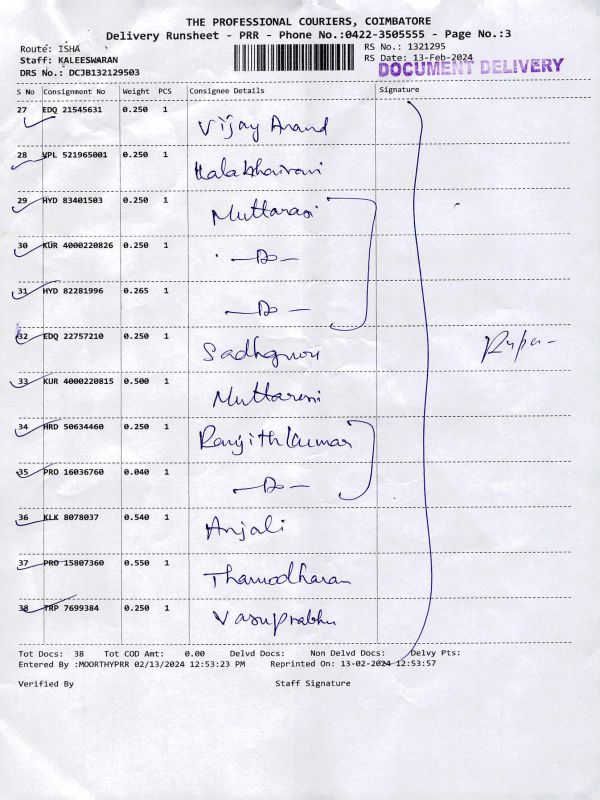 THE PROFESSIONAL COURIERS, COIMBATORE
Delivery Runsheet - PRR - Phone No.:0422-3505555 - Page No.:3
Route: ISHA
Staff: KALEESWARAN
DRS No.: DCJB132129503
RS No.: 1321295
RS Date: 13-Feb-2024
DOCUMENT DELIVERY
S No Consignment No Weight PCS Consignee Details Signature
27 EDQ 21545631 0.250 1 Vijay Anand
28 VPL 521965001 0.250 1
29 HYD 83401503 0.250 1 Muttarasi
30 KUR 4000220826 0.250 1 -Do-
31 HYD 82281996 0.265 1 -Do-
32 EDQ 22757210 0.250 1 Sadhguru
33 KUR 4000220815 0.500 1
34 HRD 50634460 0.250 1 Ranjithkumar
35 PRO 16036760 0.040 1 -Do-
36 KLK 8078037 0.540 1 Anjali
37 PRO 15807360 0.550 1 Thamodharan
38 TRP 7699384 0.250 1 Vasuprabhu
Tot Docs: 38 Tot COD Amt: 0.00 Delvd Docs: Non Delvd Docs: Delvy Pts:
Entered By :MOORTHYPRR 02/13/2024 12:53:23 PM Reprinted On: 13-02-2024 12:53:57
Verified By Staff Signature